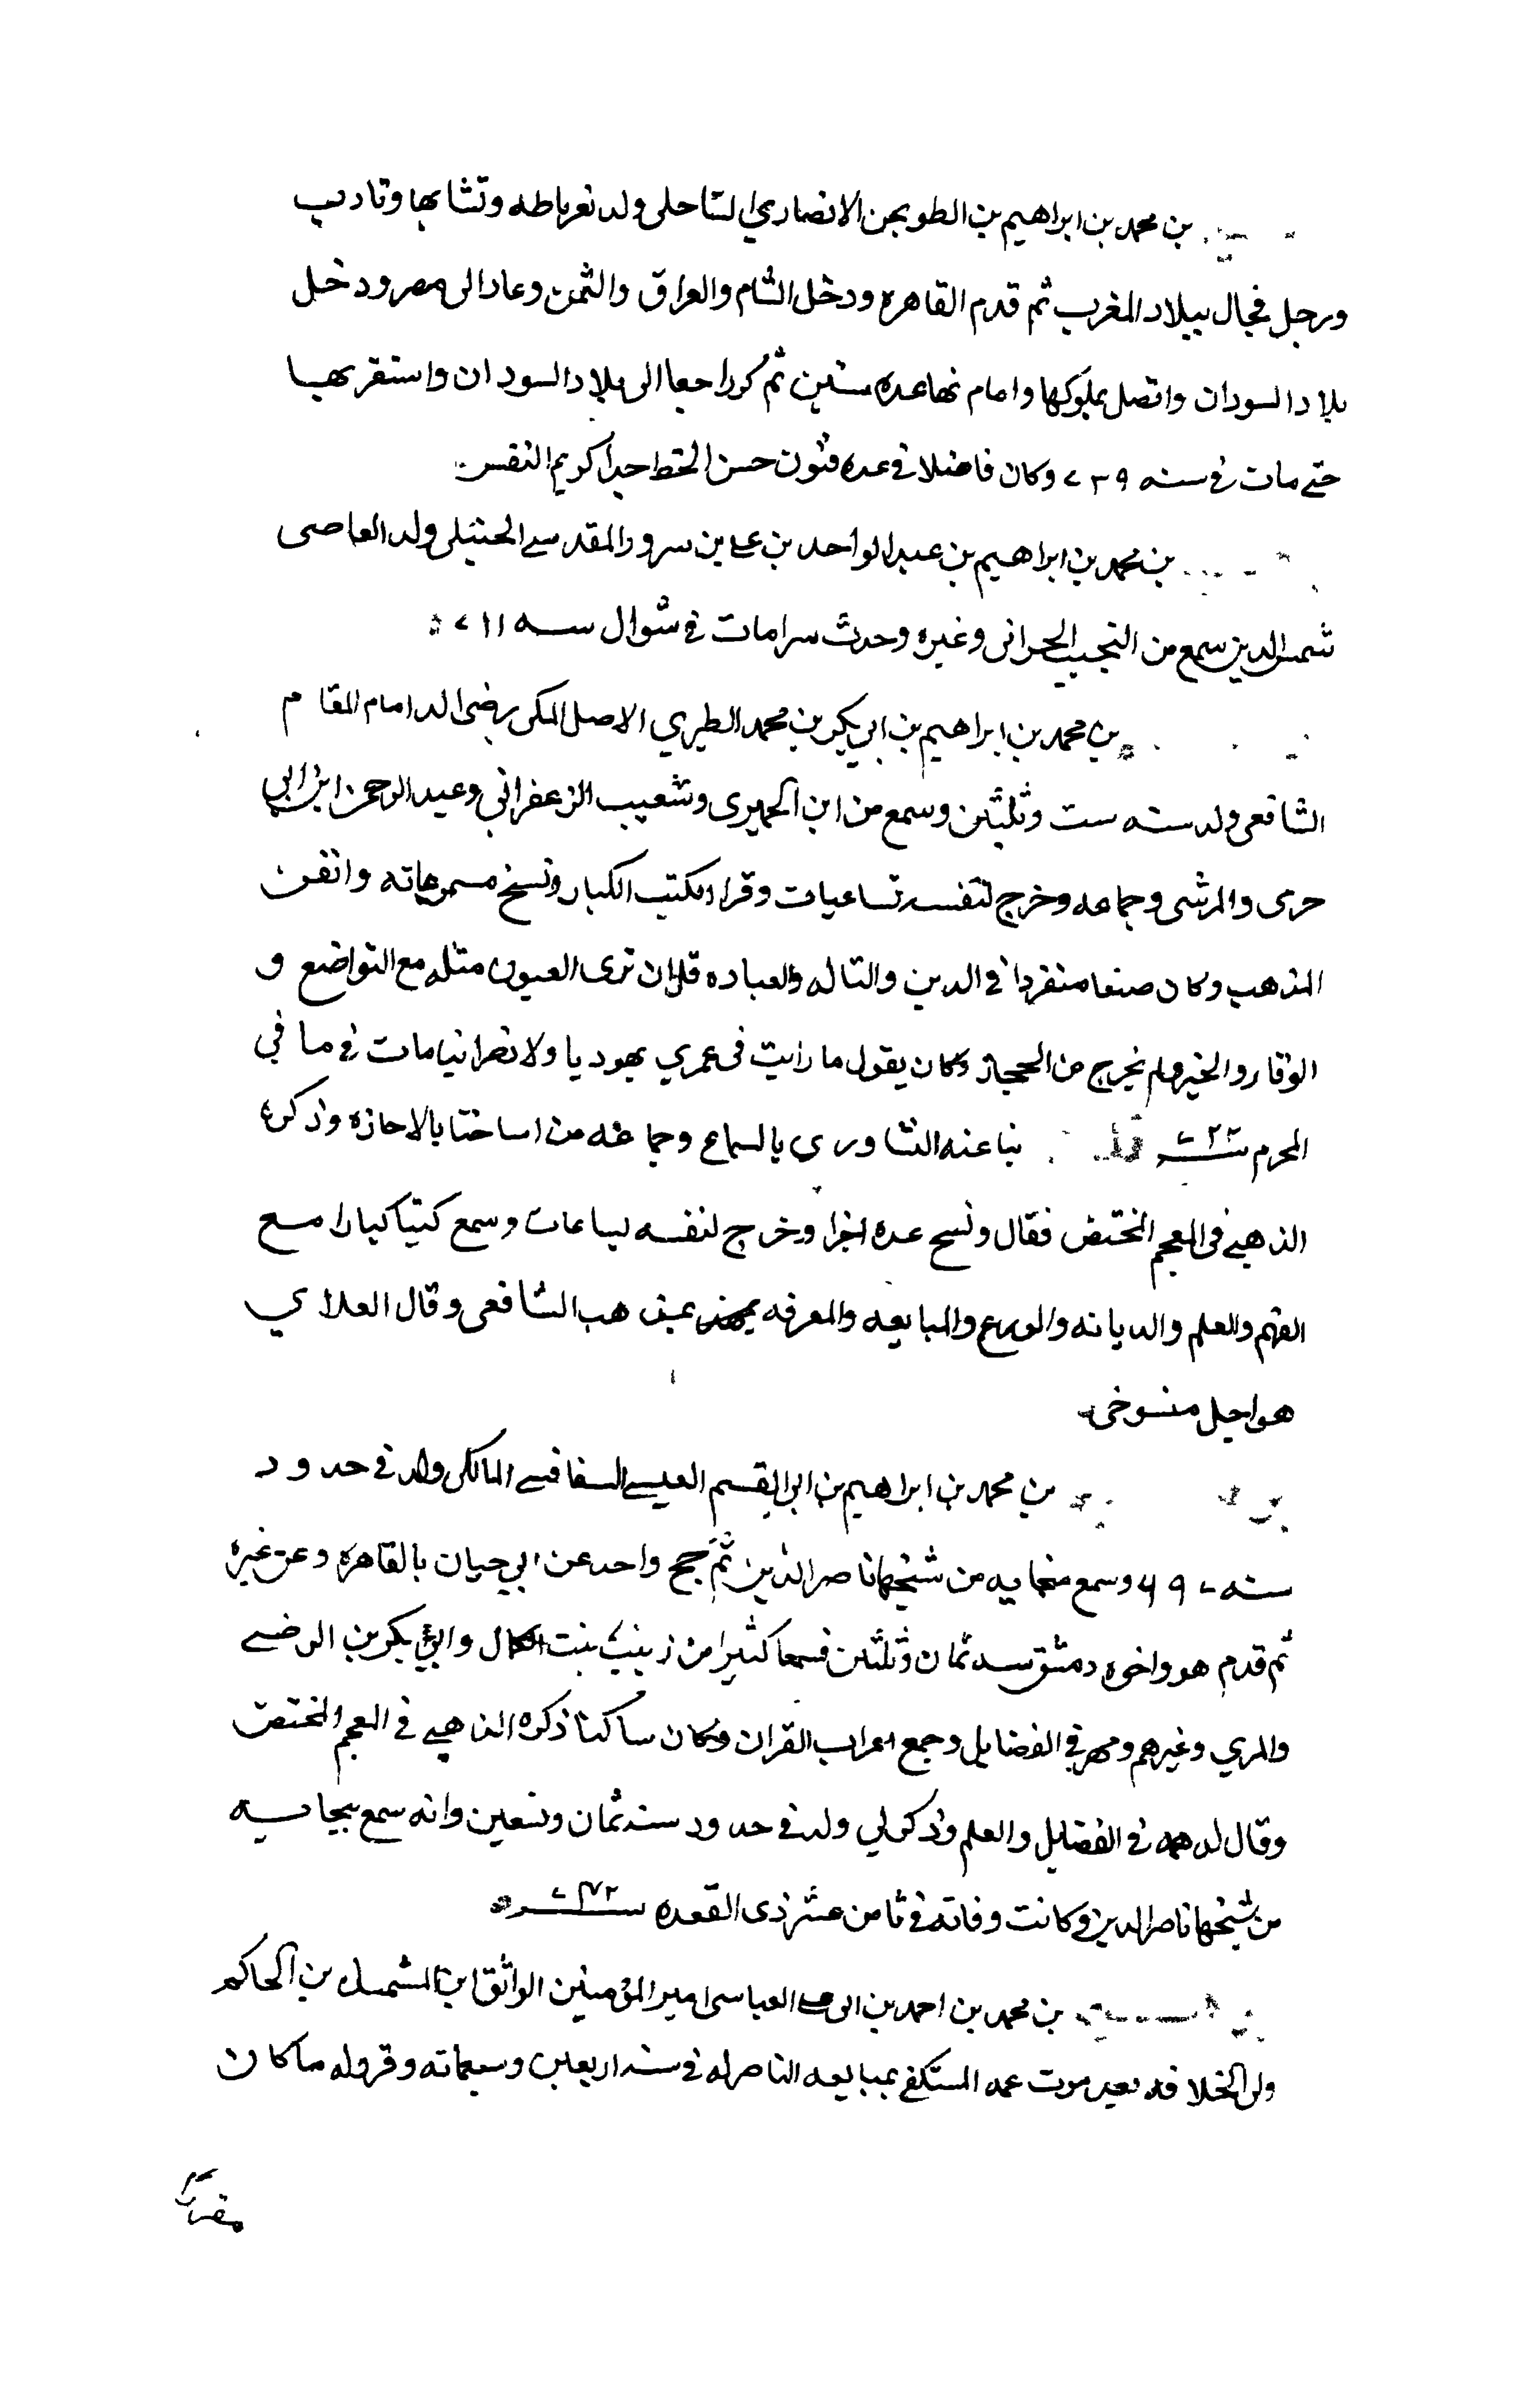 بن محمد بن ابراهيم بن الطويجن الانصاري الساحلى ولد بغرناطه ونشا بها وتادب
ورحل فجال ببلاد المغرب ثم قدم القاهره ودخل الشام والعراق واليمن وعاد الى مصر ودخل
بلاد السودان واتصل بملوكها واقام بها عده سنين ثم كر راجعا الى بلاد السودان واستقر بها
حتى مات في سنه ٧٣٩ وكان فاضلا في عده فنون حسن الخط جدا كريم النفس
بن محمد بن ابراهيم بن عبد الواحد بن علي بن سرور المقدسي الحنبلى ولد القاضى
شمس الدين سمع من النجيب الحرانى وغيره وحدث مرا مات في شوال سنه ٧١١
بن محمد بن ابراهيم بن ابي بكر بن محمد الطبري الاصل المكى رضى الدين امام المقام
الشافعى ولد سنه ست وثلثين وسمع من ابن الجميزى وشعيب الزعفراني وعبد الرحمن ابن ابي
حرمى والمرسى وجماعه وخرج لنفسه تساعيات وقرا الكتب الكبار ونسخ مسموعاته واتقن
المذهب وكان صينا منفردا في الدين والتاله والعباده قل ان ترى العيون مثله مع التواضع و
الوقار والخير ولم يخرج من الحجاز وكان يقول ما رايت فى عمري يهوديا ولا نصرانيا مات في ثاني
المحرم سنه ٧٢٢ قلت ثنا عنه النشاوري بالسماع وجماعه من اشياخنا بالاجازه وذكره
الذهبي فى المعجم المختص فقال ونسخ عده اجزا وخرج لنفسه سباعيات وسمع كتبا كبارا مع
الفهم والعلم والديانه والورع والمتابعه والمعرفه بمذهب الشافعى وقال العلاي
هو اجل شيوخى
بن محمد بن ابراهيم بن ابي القسم القيسي السفاقسي المالكى ولد في حدود
سنه ٦٩٧ وسمع ببجايه من شيخها ناصر الدين ثم حج واخذ عن ابي حيان بالقاهره وعن غيره
ثم قدم هو واخوه دمشق سنه ثمان وثلثين فسمعا كثيرا من زينب بنت الكمال وابي بكر بن الرضي
والمزي وغيرهم ومهر في الفضايل وجمع اعراب القران وكان ساكنا ذكره الذهبي في المعجم المختص
وقال له همه في الفضايل والعلم وذكر لي ولد في حدود سنه ثمان وتسعين وانه سمع ببجايه
من شيخها ناصر الدين وكانت وفاته في ثامن عشر ذى القعده سنه ٧٤٢
بن محمد بن احمد بن ابي علي العباسى امير المؤمنين الواثق ابن المستمسك بن الحاكم
ولي الخلافه بعد موت عمه المستكفي بمبايعه الناصر له في سنه اربعين وسبعمائه وقرر له ما كان